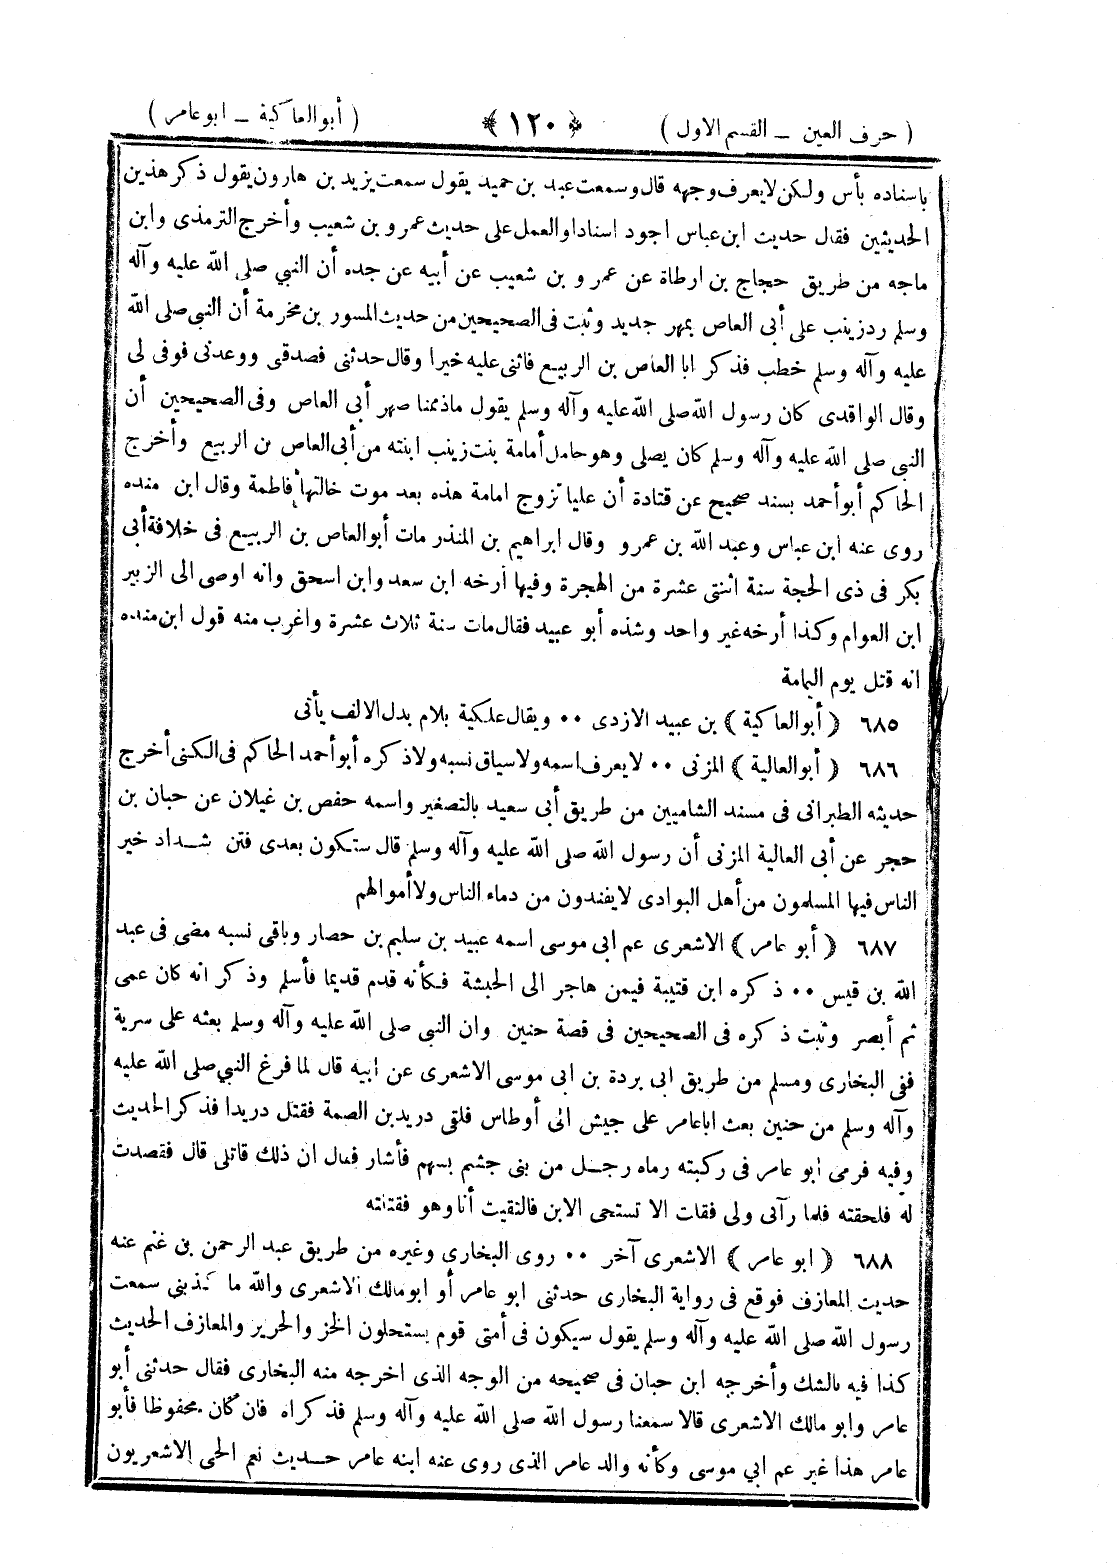 ( حرف العين – القسم الاول ) ﴿ ١٢٠ ﴾ ( أبو العاكية – ابو عامر )
باسناده بأس ولكن لا يعرف وجهه قال وسمعت عبد بن حميد يقول سمعت يزيد بن هارون يقول ذكر هذين
الحديثين فقال حديث ابن عباس اجود اسنادا والعمل على حديث عمرو بن شعيب وأخرج الترمذى وابن
ماجه من طريق حجاج بن ارطاة عن عمرو بن شعيب عن أبيه عن جده أن النبي صلى الله عليه وآله
وسلم رد زينب على أبى العاص بمهر جديد وثبت فى الصحيحين من حديث المسور بن مخرمة أن النبى صلى الله
عليه وآله وسلم خطب فذكر ابا العاص بن الربيع فاثنى عليه خيرا وقال حدثنى فصدقى ووعدنى فوفى لى
وقال الواقدى كان رسول الله صلى الله عليه وآله وسلم يقول ماذممنا صهر أبى العاص وفى الصحيحين أن
النبى صلى الله عليه وآله وسلم كان يصلى وهو حامل أمامة بنت زينب ابنته من أبى العاص بن الربيع وأخرج
الحاكم أبو أحمد بسند صحيح عن قتادة أن عليا تزوج امامة هذه بعد موت خالتها فاطمة وقال ابن منده
روى عنه ابن عباس وعبد الله بن عمرو وقال ابراهيم بن المنذر مات أبو العاص بن الربيع فى خلافة أبى
بكر فى ذى الحجة سنة اثنتى عشرة من الهجرة وفيها أرخه ابن سعد وابن اسحق وانه اوصى الى الزبير
ابن العوام وكذا أرخه غير واحد وشذه أبو عبيد فقال مات سنة ثلاث عشرة واغرب منه قول ابن منده
انه قتل يوم اليمامة
٦٨٥ ﴿ أبو العاكية ﴾ بن عبيد الازدى ٠٠ ويقال علكية بلام بدل الالف يأتى
٦٨٦ ﴿ أبو العالية ﴾ المزنى ٠٠ لا يعرف اسمه ولا سياق نسبه ولا ذكره أبو أحمد الحاكم فى الكنى أخرج
حديثه الطبرانى فى مسند الشاميين من طريق أبى سعيد بالتصغير واسمه حفص بن غيلان عن حبان بن
حجر عن أبى العالية المزنى أن رسول الله صلى الله عليه وآله وسلم قال ستكون بعدى فتن شداد خير
الناس فيها المسلمون من أهل البوادى لا يفندون من دماء الناس ولا أموالهم
٦٨٧ ﴿ أبو عامر ﴾ الاشعرى عم ابى موسى اسمه عبيد بن سليم بن حصار وباقى نسبه مضى فى عبد
الله بن قيس ٠٠ ذكره ابن قتيبة فيمن هاجر الى الحبشة فكأنه قدم قديما فأسلم وذكر انه كان عمى
ثم أبصر وثبت ذكره فى الصحيحين فى قصة حنين وان النبي صلى الله عليه وآله وسلم بعثه على سرية
ففى البخارى ومسلم من طريق ابى بردة بن ابى موسى الاشعرى عن ابيه قال لما فرغ النبي صلى الله عليه
وآله وسلم من حنين بعث ابا عامر على جيش الى أوطاس فلقى دريد بن الصمة فقتل دريدا فذكر الحديث
وفيه فرمى ابو عامر فى ركبته رماه رجل من بنى جشم بسهم فأشار فقال ان ذلك قاتلى قال فقصدت
له فلحقته فلما رآنى ولى فقلت الا تستحى الا بن فالتقيت أنا وهو فقتلته
٦٨٨ ﴿ ابو عامر ﴾ الاشعرى آخر ٠٠ روى البخارى وغيره من طريق عبد الرحمن بن غنم عنه
حديث المعازف فوقع فى رواية البخارى حدثنى ابو عامر أو ابو مالك الاشعرى والله ما كذبنى سمعت
رسول الله صلى الله عليه وآله وسلم يقول سيكون فى أمتى قوم يستحلون الخز والحرير والمعازف الحديث
كذا فيه بالشك وأخرجه ابن حبان فى صحيحه من الوجه الذى اخرجه منه البخارى فقال حدثنى أبو
عامر وابو مالك الاشعرى قالا سمعنا رسول الله صلى الله عليه وآله وسلم فذكراه فان كان محفوظا فأبو
عامر هذا غير عم ابي موسى وكأنه والد عامر الذى روى عنه ابنه عامر حديث نعم الحى الاشعريون